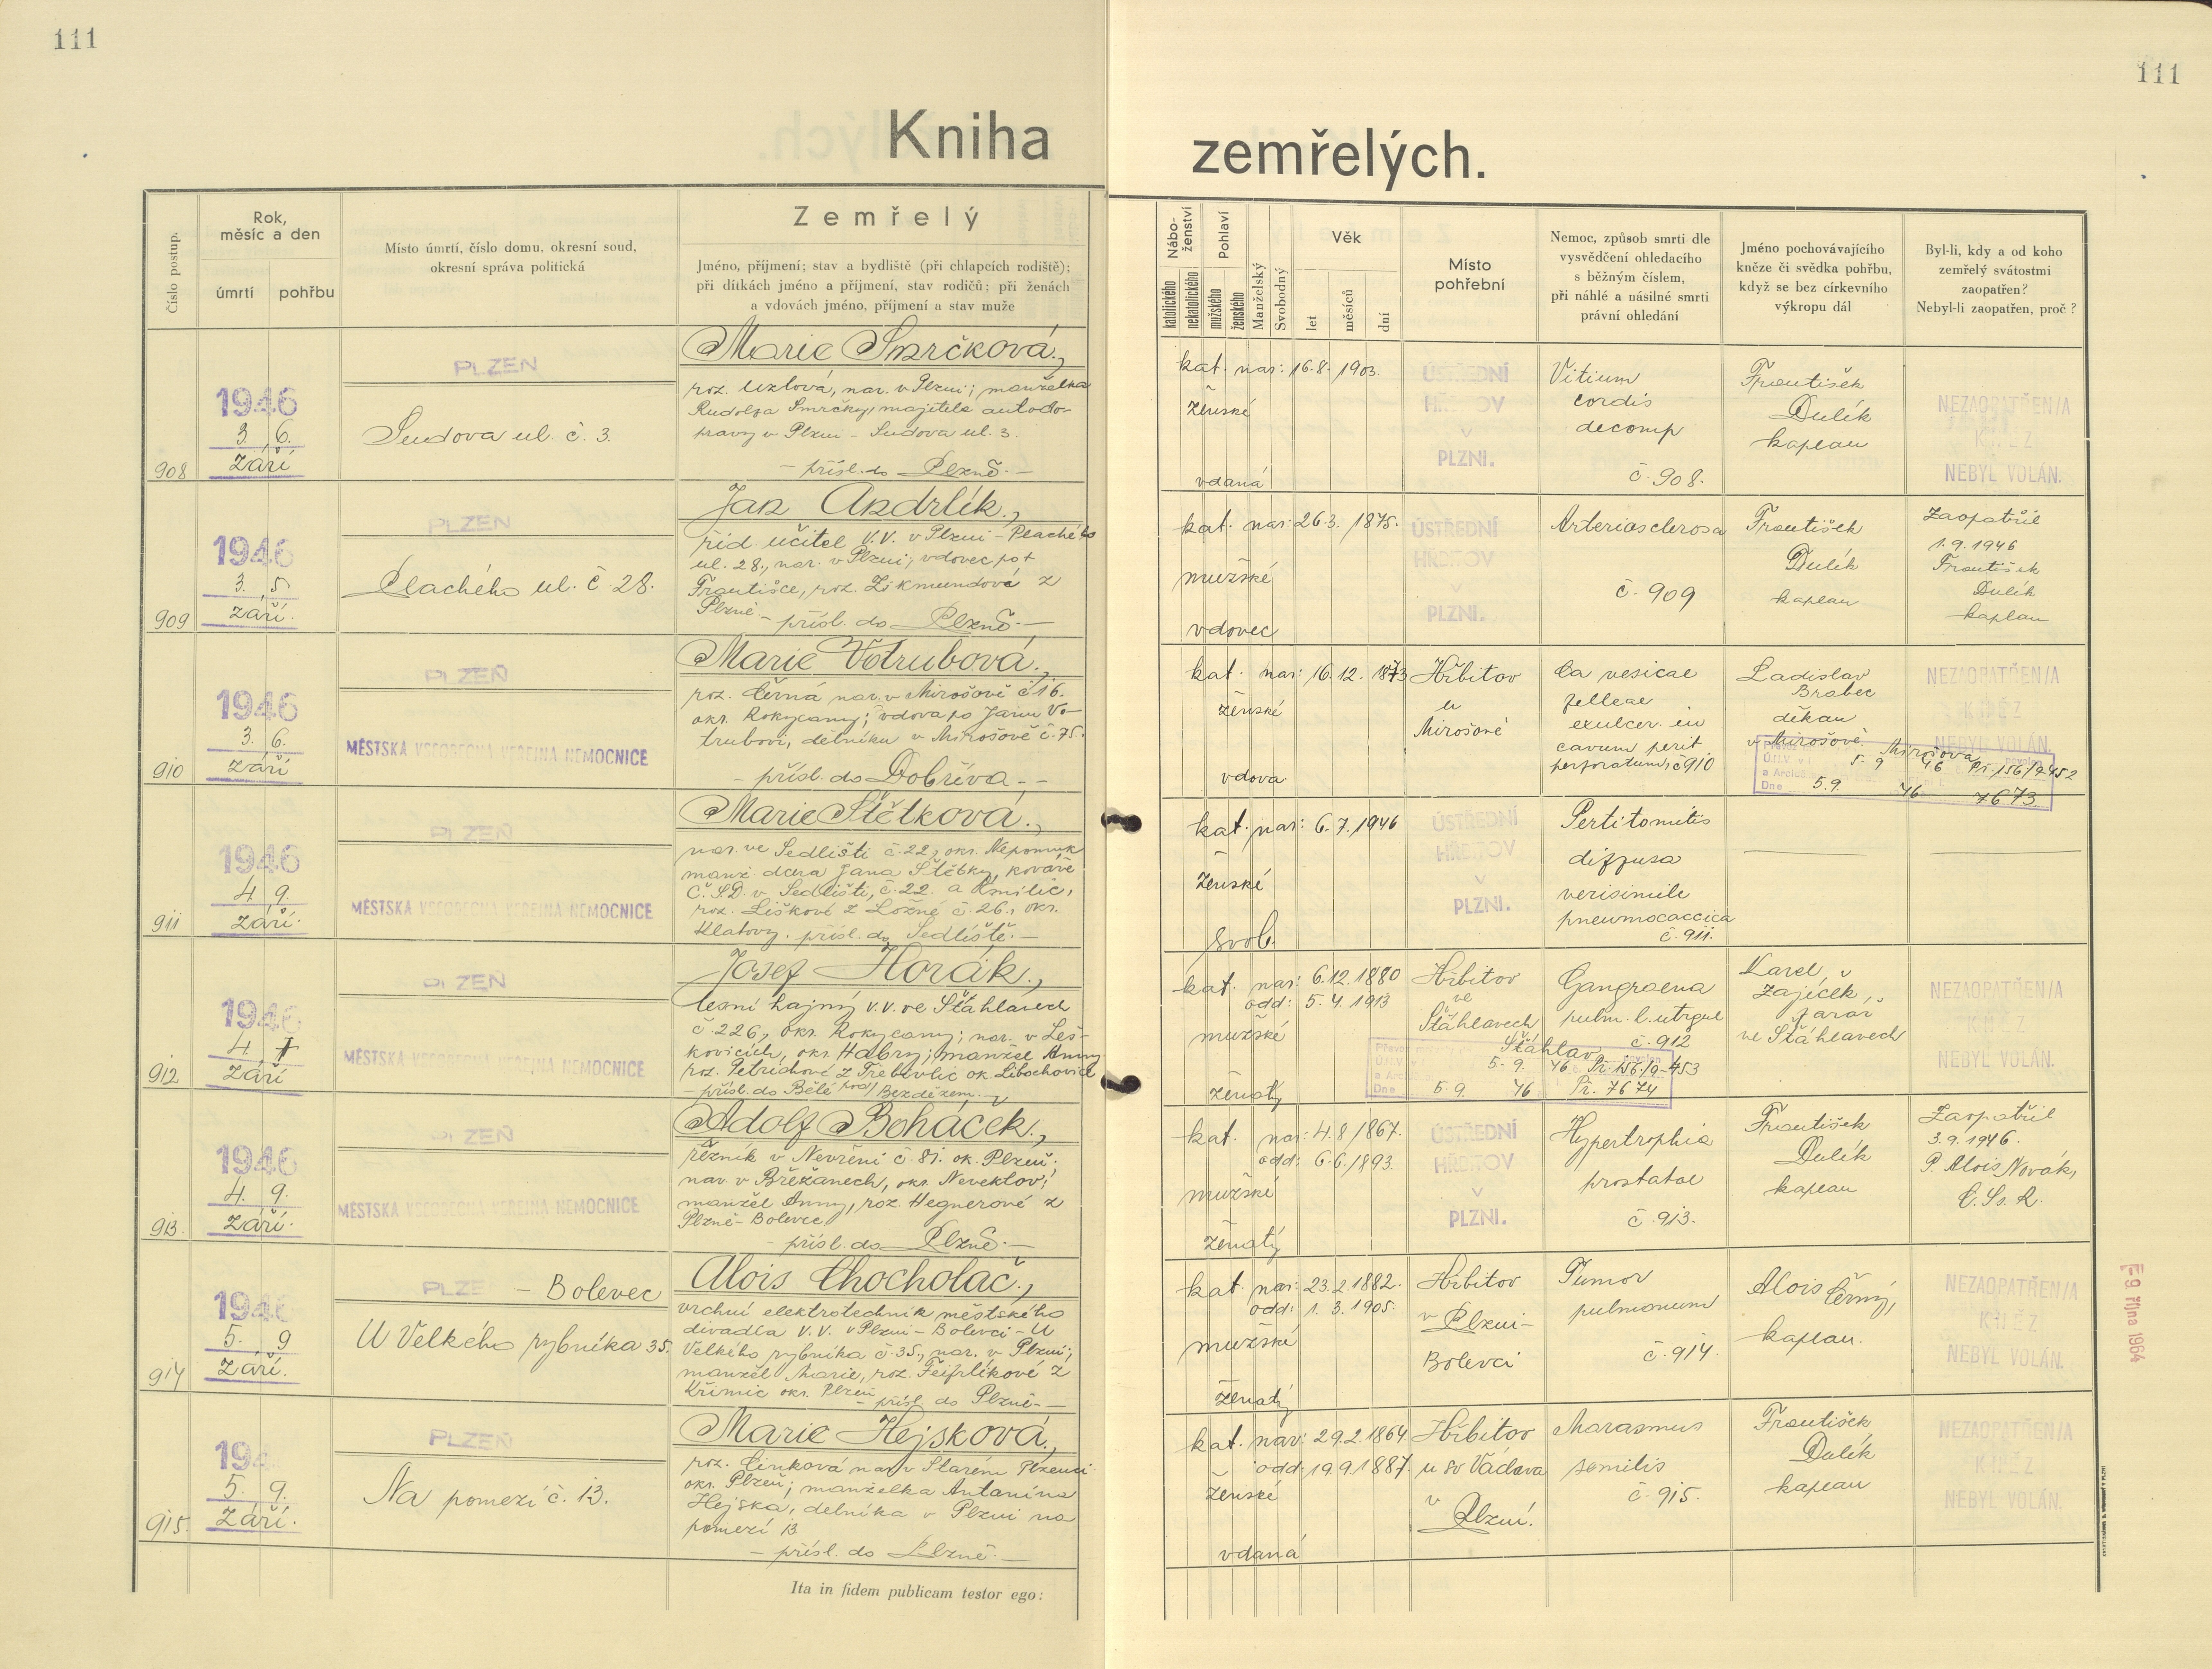 111
111
Kniha
zemřelých.
Číslo postup.
Rok,
měsíc a den
úmrtí
pohřbu
Místo úmrtí, číslo domu, okresní soud,
okresní správa politická
Zemřelý
Jméno, příjmení; stav a bydliště (při chlapcích rodiště);
při dítkách jméno a příjmení, stav rodičů; při ženách
a vdovách jméno, příjmení a stav muže
Nábo-
ženství
katolického
nekatolického
Pohlaví
mužského
ženského
Manželský
Svobodný
Věk
let
měsíců
dní
Místo
pohřební
Nemoc, způsob smrti dle
vysvědčení ohledacího
s běžným číslem,
při náhlé a násilné smrti
právní ohledání
Jméno pochovávajícího
kněze či svědka pohřbu,
když se bez církevního
výkropu dál
Byl-li, kdy a od koho
zemřelý svátostmi
zaopatřen?
Nebyl-li zaopatřen, proč?
908
1946
3. 6.
září
PLZEŇ
Sudova ul. č. 3.
Marie Smrčková,
roz. Uzlová, nar. v Plzni; manželka
Rudolfa Smrčky, majitele autodo-
pravy v Plzni - Sudova ul. 3.
- přísl. do Plzně. -
kat. nar: 16. 8. 1903.
ženské
vdaná
ÚSTŘEDNÍ
HŘBITOV
v
PLZNI.
Vitium
cordis
decomp
č. 908.
František
Dulík
kaplan
NEZAOPATŘEN/A
KNĚZ
NEBYL VOLÁN.
909
1946
3. 5
září.
PLZEŇ
Plachého ul. č. 28.
Jan Andrlík,
říd. učitel V.V. v Plzni - Plachého
ul. 28, nar. v Plzni; vdovec po †
Františce, roz. Zikmundové z
Plzně. - přísl. do Plzně. -
kat. nar: 26. 3. 1875.
mužské
vdovec
ÚSTŘEDNÍ
HŘBITOV
v
PLZNI.
Arteriosclerosa
č. 909
František
Dulík
kaplan
Zaopatřil
1. 9. 1946
František
Dulík
kaplan
910
1946
3. 6.
září
PLZEŇ
MĚSTSKÁ VŠEOBECNÁ VEŘEJNÁ NEMOCNICE
Marie Votrubová,
roz. Černá nar. v Mirošově č. 16.
okr. Rokycany; vdova po Janu Vo-
trubovi, dělníku v Mirošově č. 75.
- přísl. do Dobříva. -
kat. nar: 16. 12. 1873
ženské
vdova
Hřbitov
v
Mirošově
Ca vesicae
felleae
exulcer. in
cavum perit.
perforatum, č. 910.
Ladislav
Brabec
děkan
v Mirošově.
NEZAOPATŘEN/A
KNĚZ
NEBYL VOLÁN.
Mirošova
5. 9 46 Př. 156/9-452
Dne 5. 9. 46 7673.
911
1946
4. 9.
září.
PLZEŇ
MĚSTSKÁ VŠEOBECNÁ VEŘEJNÁ NEMOCNICE
Marie Štětková,
nar. ve Sedlišti č. 22, okr. Nepomuk
manž. dcera Jana Štětky, kováře
Č.S.D. v Sedlišti, č. 22. a Emilie,
roz. Liškové z Ložné č. 26., okr.
Klatovy. přísl. do Sedliště. -
kat. nar: 6. 7. 1946
ženské
svob.
ÚSTŘEDNÍ
HŘBITOV
v
PLZNI.
Pertitomitis
diffusa
verisimile
pneumocaccica
č. 911.
912
1946
4. 7
září
PLZEŇ
MĚSTSKÁ VŠEOBECNÁ VEŘEJNÁ NEMOCNICE
Josef Horák,
lesní hajný v.v. ve Šťáhlavech
č. 226, okr. Rokycany; nar. v Leš-
kovicích, okr. Habry; manžel Anny
roz. Petrichové z Třebívlic ok. Libochovice
- přísl. do Bělé pod Bezdězem. -
kat. nar: 6. 12. 1880
odd: 5. 4. 1913
mužské
ženatý
Hřbitov
ve
Šťáhlavech
Gangraena
pulm. l. utrque
č. 912
Karel
Zajíček,
farář
ve Šťáhlavech
NEZAOPATŘEN/A
KNĚZ
NEBYL VOLÁN.
Šťáhlav
5. 9. 46 Př. 156/9-453
Dne 5. 9. 46 Př. 7674
913.
1946
4. 9.
září.
PLZEŇ
MĚSTSKÁ VŠEOBECNÁ VEŘEJNÁ NEMOCNICE
Adolf Boháček,
řezník v Nevřeni č. 81. ok. Plzeň;
nar. v Břežanech, okr. Neveklov;
manžel Anny, roz. Hegnerové z
Plzně-Bolevce
- přísl. do Plzně. -
kat. nar: 4. 8. 1867.
odd: 6. 6. 1893.
mužské
ženatý
ÚSTŘEDNÍ
HŘBITOV
v
PLZNI.
Hypertrophia
prostatae
č. 913.
František
Dulík
kaplan
Zaopatřil
3. 9. 1946.
P. Alois Novák,
C. Ss. R.
914
1946
5. 9
září.
PLZE - Bolevec
U Velkého rybníka 35.
Alois Chocholáč,
vrchní elektrotechnik městského
divadla V.V. v Plzni - Bolevci - U
Velkého rybníka č. 35., nar. v Plzni;
manžel Marie, roz. Fejfrlíkové z
Křimic okr. Plzeň
- přísl. do Plzně. -
kat. nar: 23. 2. 1882.
odd: 1. 3. 1905.
mužské
ženatý
Hřbitov
v Plzni-
Bolevci
Tumor
pulmonum
č. 914.
Alois Černý,
kaplan.
NEZAOPATŘEN/A
KNĚZ
NEBYL VOLÁN.
-9. října 1964
915.
194
5. 9.
září.
PLZEŇ
Na pomezí č. 13.
Marie Hejsková,
roz. Cinková nar. v Starém Plzenci
okr. Plzeň; manželka Antonína
Hejska, dělníka v Plzni na
pomezí 13
- přísl. do Plzně. -
kat. nar: 29. 2. 1864
odd: 19. 9. 1887.
ženské
vdaná
Hřbitov
u sv Václava
v
Plzni.
Marasmus
senilis
č. 915.
František
Dulík
kaplan
NEZAOPATŘEN/A
KNĚZ
NEBYL VOLÁN.
Ita in fidem publicam testor ego: